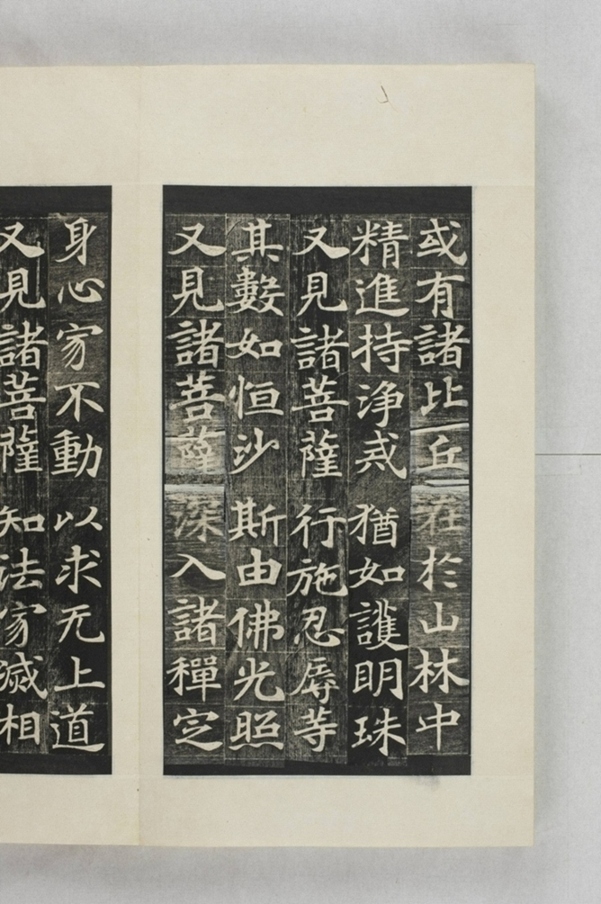 或有諸比丘在於山林中
精進持淨戒猶如護明珠
又見諸菩薩行施忍辱等
其數如恒沙斯由佛光照
又見諸菩薩深入諸禪定
身心寂不動以求无上道
又見諸菩薩知法寂滅相